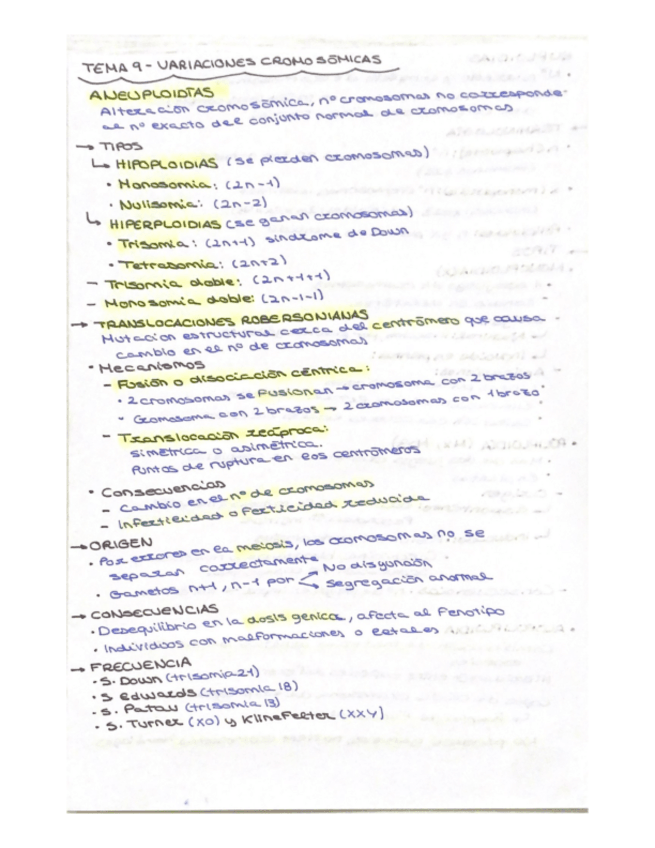 TEMA 9 - VARIACIONES CROMOSÓMICAS
ANEUPLOIDÍAS
Alteración cromosómica, nº cromosomas no corresponde
al nº exacto del conjunto normal de cromosomas
→ TIPOS
↳ HIPOPLOIDIAS (se pierden cromosomas)
• Monosomia: (2n-1)
• Nulisomia: (2n-2)
↳ HIPERPLOIDIAS (se ganan cromosomas)
• Trisomia: (2n+1) síndrome de Down
• Tetrasomia: (2n+2)
- Trisomia doble: (2n+1+1)
- Monosomia doble: (2n-1-1)
→ TRANSLOCACIONES ROBERSONIANAS
Mutacion estructural cerca del centrómero que causa
cambio en el nº de cromosomas
• Mecanismos
- Fusión o disociación céntrica:
• 2 cromosomas se fusionan → cromosoma con 2 brazos
• Cromosoma con 2 brazos → 2 cromosomas con 1 brazo
- Translocación recíproca:
simétrica o asimétrica.
Puntos de ruptura en los centrómeros
• Consecuencias
- Cambio en el nº de cromosomas
- Infertilidad o fertilidad reducida
→ ORIGEN
• Por errores en la meiosis, los cromosomas no se
separan correctamente
• Gametos n+1, n-1 por → No disyunción
→ segregación anormal
→ CONSECUENCIAS
• Desequilibrio en la dosis génica, afecta al fenotipo
• Individuos con malformaciones o letales
→ FRECUENCIA
• S. Down (trisomia 21)
• S edwards (trisomia 18)
• S. Patau (trisomia 13)
• S. Turner (XO) y Klinefelter (XXY)